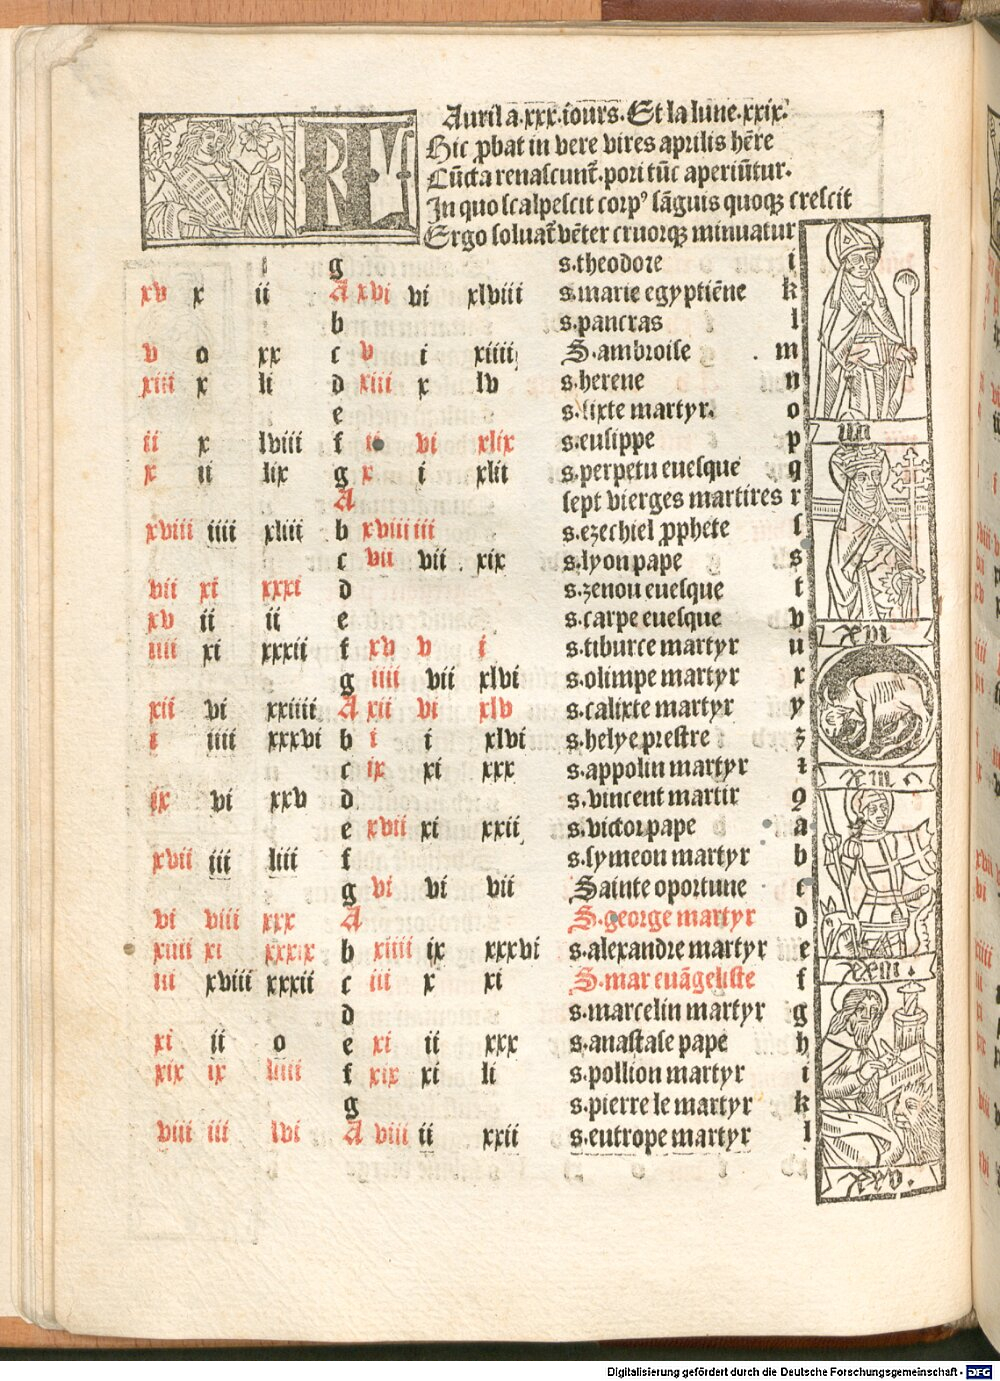 KL
Auril a .xxx. iours. Et la lune .xxix.
Hic ꝓbat in vere vires aprilis hēre
Cūcta renascunt̄. pori tūc aperiūtur.
In quo scalpescit corpꝰ sāguis quoqꝫ crescit
Ergo soluat̄ vēter cruorqꝫ minuatur
i g s. theodore i
xv x ii A xvi vi xlviii s. marie egyptiēne k
b s. pancras l
v o xx c v i xiiii S. ambroise m
xiii x li d xiii x lv s. herene n
e s. sixte martyr. o
ii x lviii f ii vi xlix s. eusippe p
x ii lix g x i xlii s. perpetu euesque q
A sept vierges martires r
xviii iiii xliii b xviii iii s. ezechiel ꝓphete ſ
c vii vii xix s. lyon pape s
vii xi xxxi d s. zenou euesque t
xv ii ii e s. carpe euesque v
iiii xi xxxii f xv v i s. tiburce martyr u
g iiii vii xlvi s. olimpe martyr x
xii vi xxiiii A xii vi xlv s. calixte martyr y
i iiii xxxvi b i i xlvi s. helye prestre z
c ix xi xxx s. appolin martyr ⁊
ix vi xxv d s. vincent martir 9
e xvii xi xxii s. victor pape a
xvii iii liii f s. symeon martyr b
g vi vi vii Sainte oportune c
vi viii xxx A S. george martyr d
xiiii xi xxxix b xiiii ix xxxvi s. alexandre martyr e
iii xviii xxxii c iii x xi S. mar euāgeliste f
d s. marcelin martyr g
xi ii o e xi ii xxx s. anastase pape h
xix ix liiii f xix xi li s. pollion martyr i
g s. pierre le martyr k
viii iii lvi A viii ii xxii s. eutrope martyr l
iiii
xiii
xxiii.
xxv.
Digitalisierung gefördert durch die Deutsche Forschungsgemeinschaft - DFG